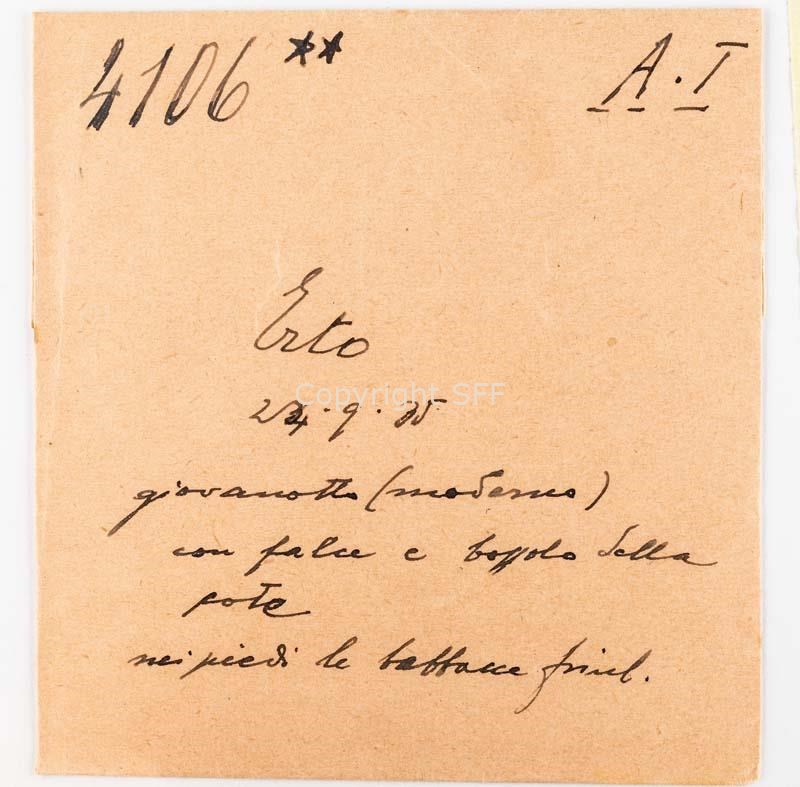 4106 **
A. I
Erto
24.9.35
giovanotto (moderno)
con falce e bossolo della
cote
nei piedi le babbucce friul.
Copyright SFF